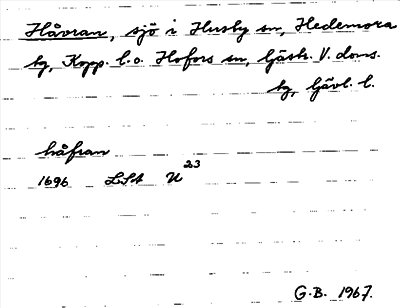 Håvran, sjö i Husby sn, Hedemora
tg, Kopp. l. o. Hofors sn, Gästr. V. doms.
tg, Gävl. l.
håfran
1696 LSA U 23
G.B. 1967.